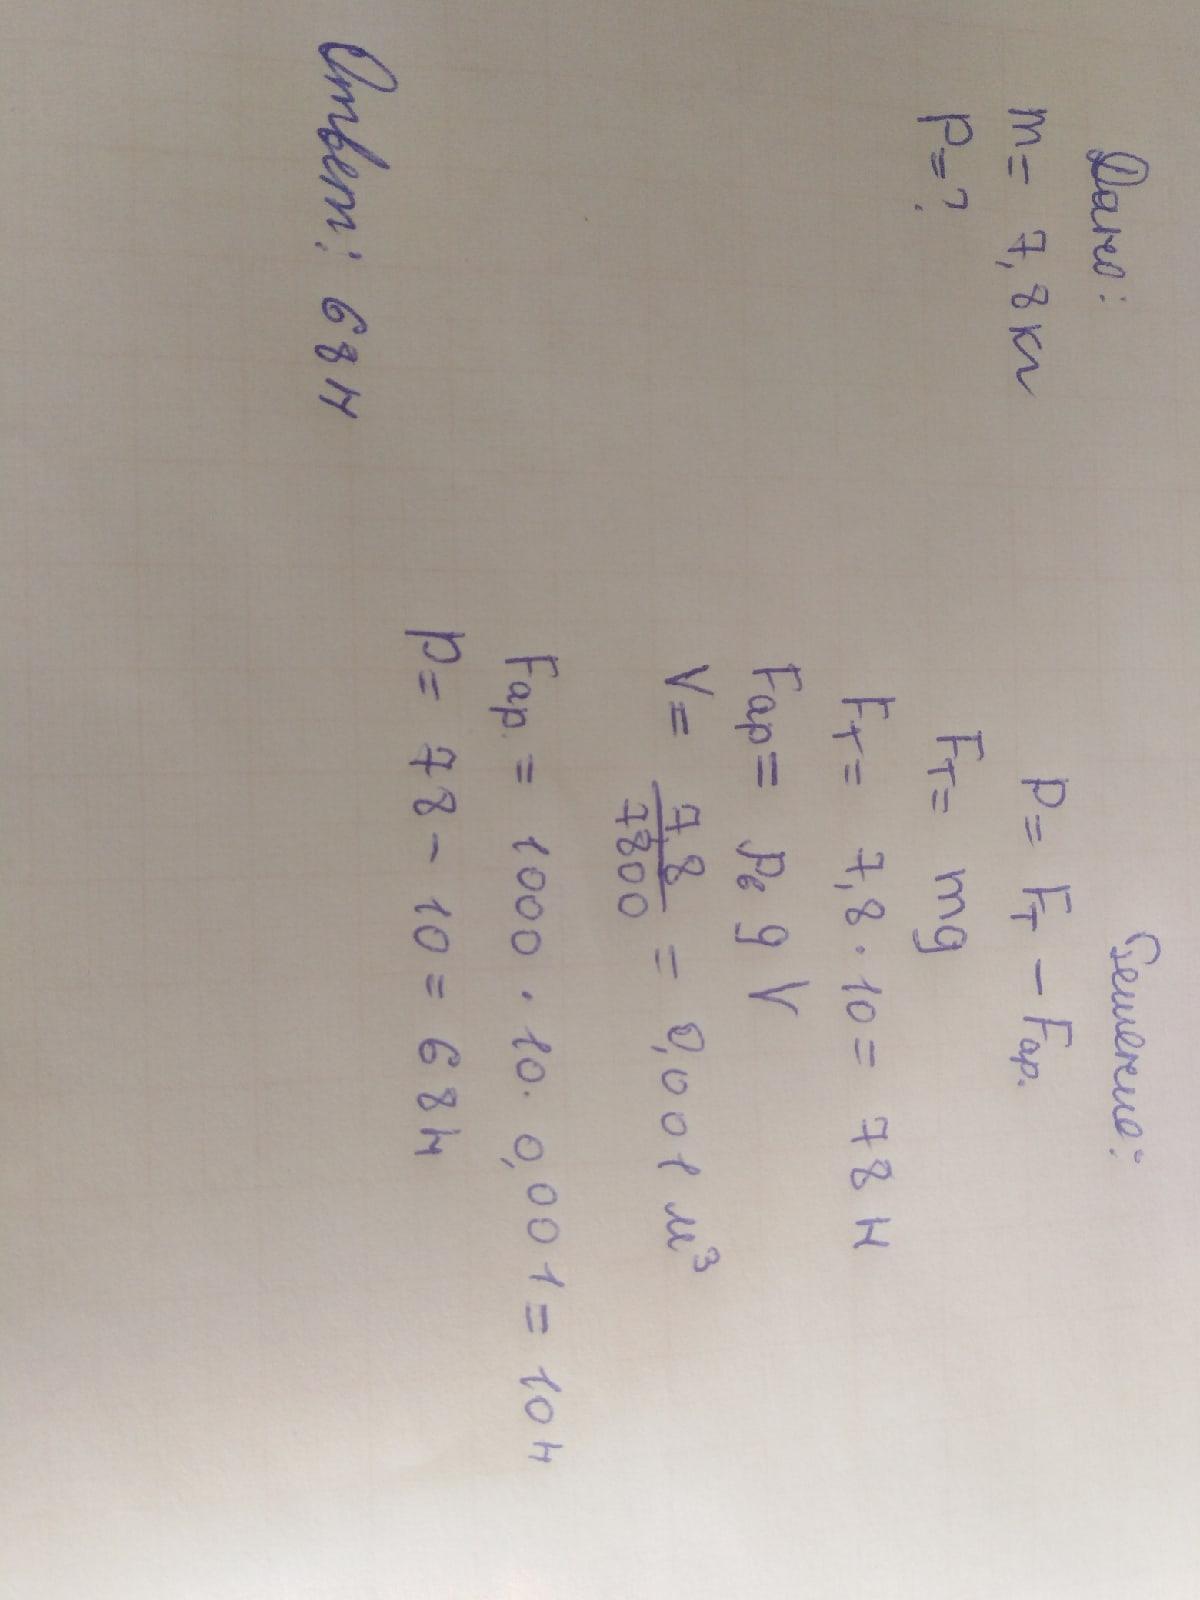 Дано:
m= 7,8 кг
P=?
Решение:
P= Fт - Fар.
Fт= mg
Fт= 7,8 · 10= 78 Н
Fар= ρв g V
V= 7,8/7800 = 0,001 м³
Fар. = 1000 · 10 · 0,001= 10 Н
P= 78 - 10= 68 Н
Ответ: 68 Н